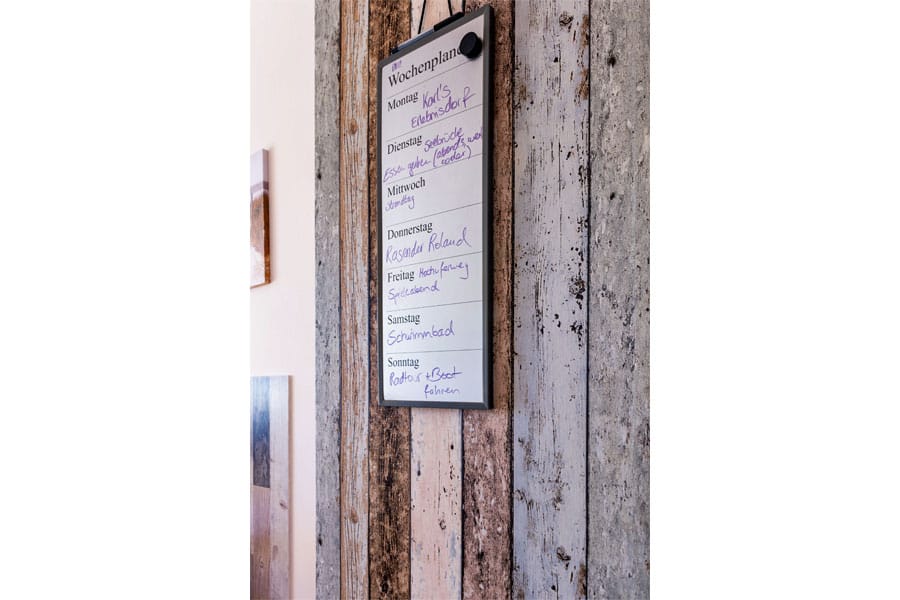 Wochenplaner
Montag Karl's
Erlebnisdorf
Dienstag Seebrücke
Essen gehen (abends
Mittwoch
Strandtag
Donnerstag
Rasender Roland
Freitag Hochuferweg
Spieleabend
Samstag
Schwimmbad
Sonntag
Radtour + Boot
fahren